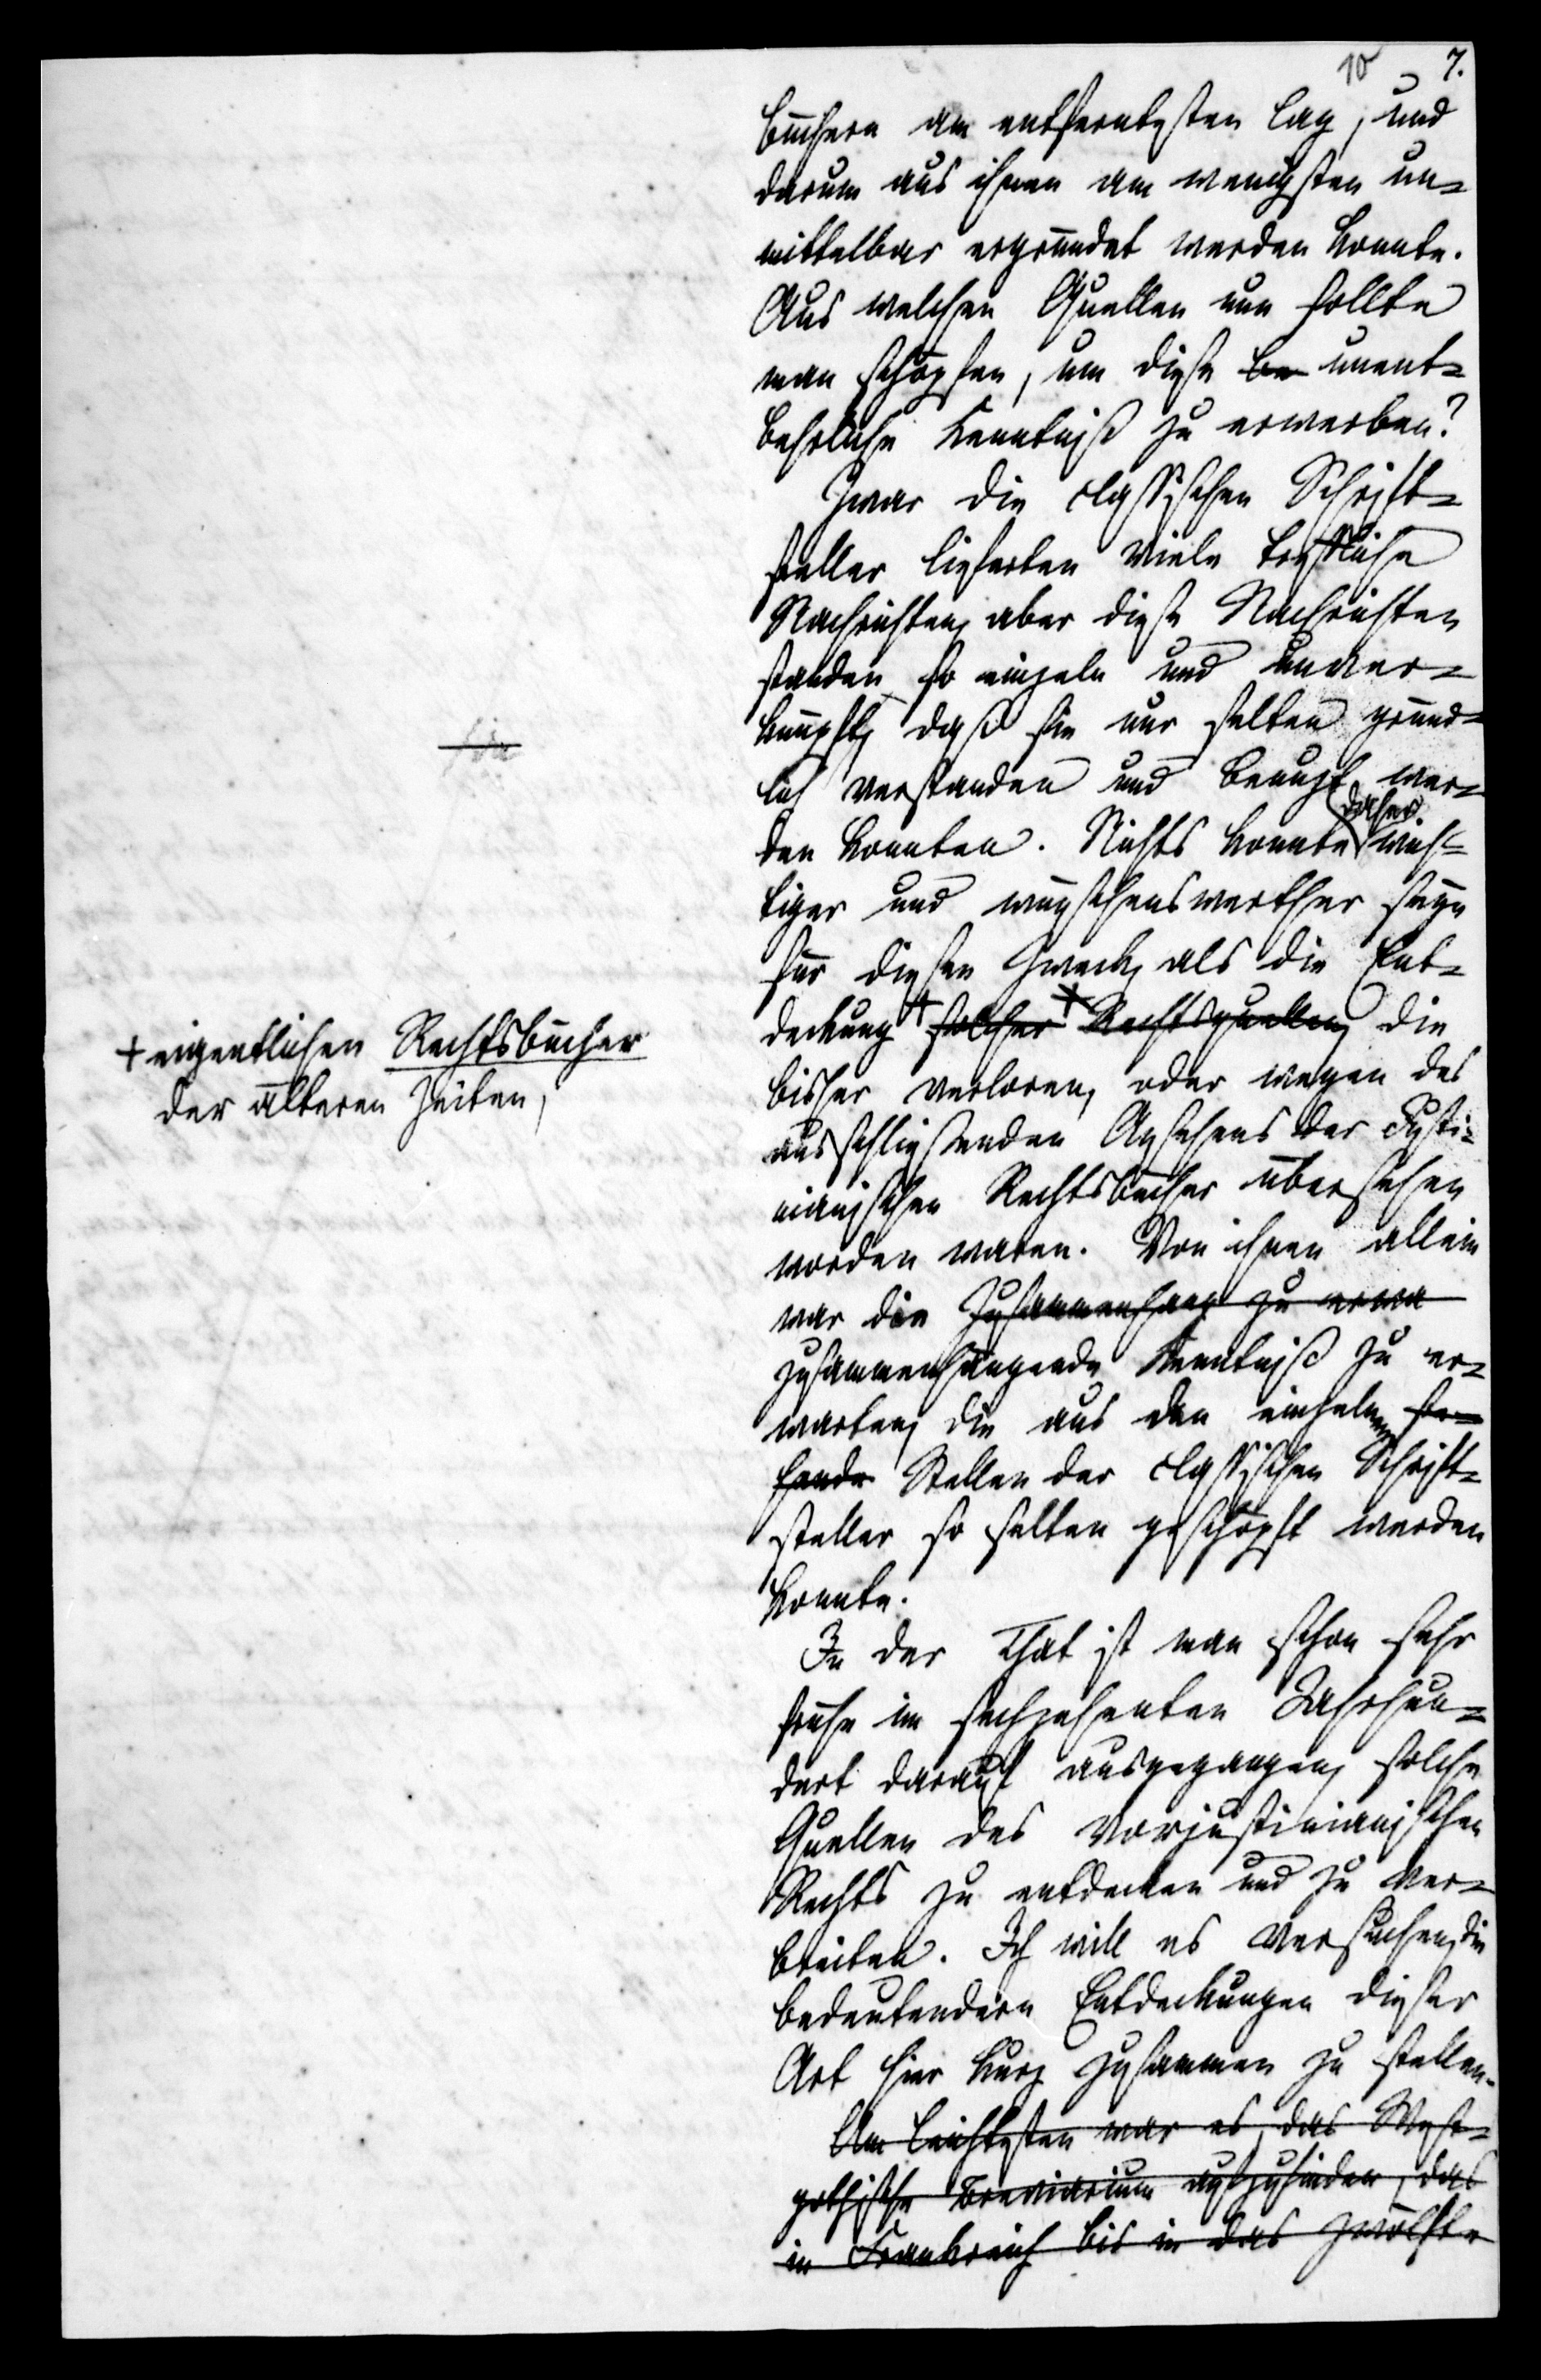 10 7.
büchern am entferntesten lag, und
darum aus ihnen am wenigsten un-
mittelbar ergründet werden konnte.
Aus welchen Quellen nun sollte
man schöpfen, um diese be unent-
behrliche Kenntniß zu erwerben?
Zwar die classischen Schrift-
steller lieferten viele treffliche
Nachrichten, aber diese Nachrichten
standen so einzeln und unver-
knüpft, daß sie nur selten gründ-
lich verstanden und benutzt wer-
den konnten. Nichts konnte daher wich-
tiger und wünschenswerther seyn
für diesen Zweck, als die Ent-
deckung + solcher + Rechtsquellen, die
bisher verloren, oder wegen des
ausschließenden Ansehens der Justi-
nianischen Rechtsbücher übersehen
worden waren. Von ihnen allein
war die Zusammenhang zu erwa
zusammenhängende Kenntniß zu er-
warten, die aus den einzelnen ste-
henden Stellen der classischen Schrift-
steller so selten geschöpft werden
konnte.
In der That ist man schon sehr
frühe im sechzehenten Jahrhun-
dert darauf ausgegangen, solche
Quellen des vorjustinianischen
Rechts zu entdecken und zu ver-
breiten. Ich will es versuchen, die
bedeutendern Entdeckungen dieser
Art hier kurz zusammen zu stellen.
Am leichtesten war es, das West-
gothische Breviarium aufzufinden, das
in Frankreich bis in das zwölfte
+ eigentlichen Rechtsbücher
der älteren Zeiten,